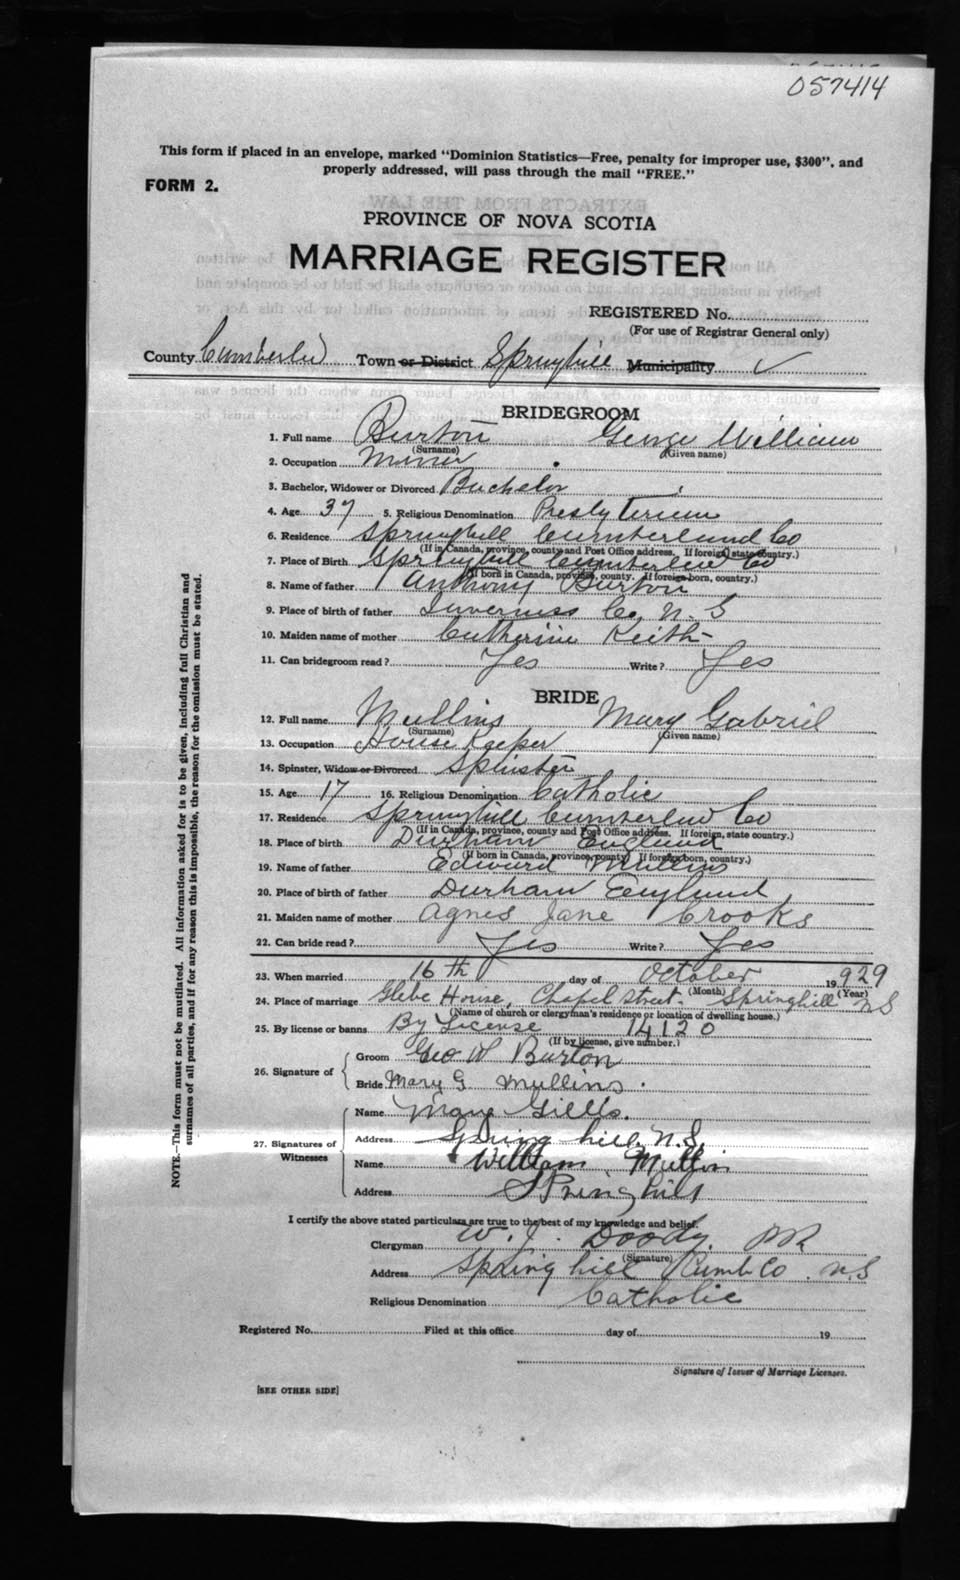 057414
This form if placed in an envelope, marked "Dominion Statistics—Free, penalty for improper use, $300", and
properly addressed, will pass through the mail "FREE."
FORM 2.
PROVINCE OF NOVA SCOTIA
MARRIAGE REGISTER
REGISTERED No.
(For use of Registrar General only)
County Cumberland Town or District Springhill Municipality ✓
BRIDEGROOM
1. Full name Burton George William
(Surname) (Given name)
2. Occupation Miner
3. Bachelor, Widower or Divorced Bachelor
4. Age 37 5. Religious Denomination Presbyterian
6. Residence Springhill Cumberland Co
(If in Canada, province, county and Post Office address. If foreign, state country.)
7. Place of Birth Springhill Cumberland Co
(If born in Canada, province, county. If foreign-born, country.)
8. Name of father Anthony Burton
9. Place of birth of father Inverness Co, N. S
10. Maiden name of mother Catherine Keith
11. Can bridegroom read? Yes Write? Yes
BRIDE
12. Full name Mullins Mary Gabriel
(Surname) (Given name)
13. Occupation House Keeper
14. Spinster, Widow or Divorced Spinster
15. Age 17 16. Religious Denomination Catholic
17. Residence Springhill Cumberland Co
(If in Canada, province, county and Post Office address. If foreign, state country.)
18. Place of birth Durham England
(If born in Canada, province, county. If foreign-born, country.)
19. Name of father Edward Mullins
20. Place of birth of father Durham England
21. Maiden name of mother Agnes Jane Crooks
22. Can bride read? Yes Write? Yes
23. When married 16th day of October 1929
(Month) (Year)
24. Place of marriage Glebe House, Chapel Street. Springhill NS
(Name of church or clergyman's residence or location of dwelling house.)
25. By license or banns By License 14120
(If by license, give number.)
26. Signature of
Groom Geo W Burton
Bride Mary G Mullins.
27. Signatures of Witnesses
Name Mary Gillis.
Address Spring hill, N.S.
Name William Mullin
Address Springhill
I certify the above stated particulars are true to the best of my knowledge and belief.
Clergyman W. J. Doody.
(Signature)
Address Spring hill Cumb Co. N.S
Religious Denomination Catholic
Registered No. Filed at this office day of 19
Signature of Issuer of Marriage Licenses.
[SEE OTHER SIDE]
NOTE.—This form must not be mutilated. All information asked for is to be given, including full Christian and
surnames of all parties, and if for any reason this is impossible, the reason for the omission must be stated.